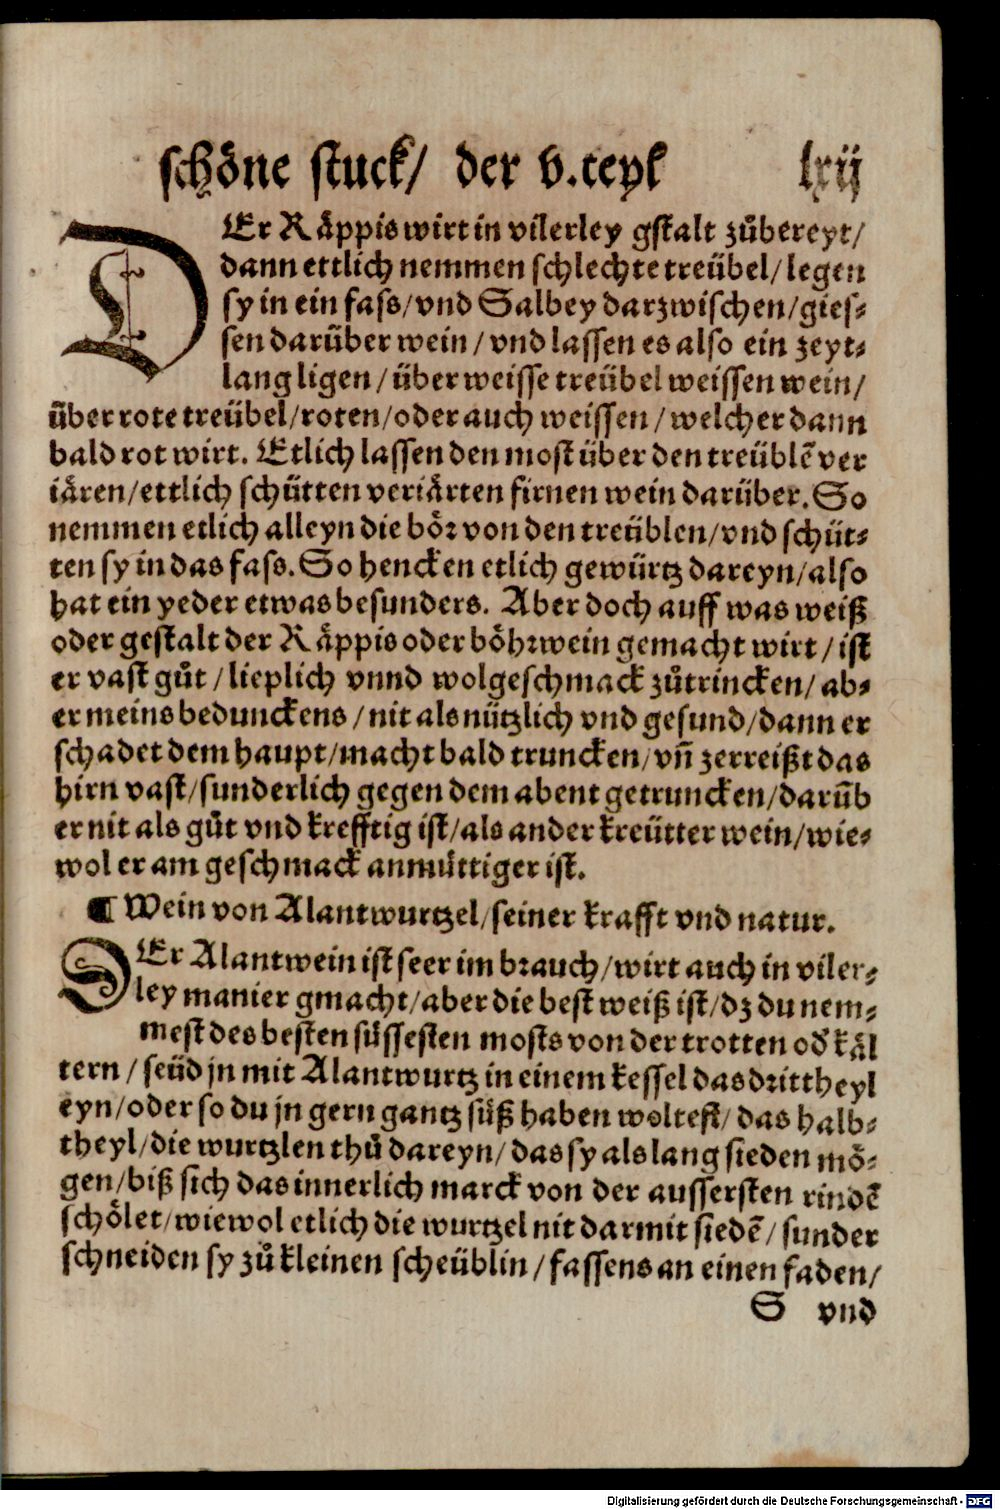 schöne stuck/ der v.teyl lxij
DEr Räppis wirt in vilerley gstalt zůbereyt/
dann ettlich nemmen schlechte treübel/legen
sy in ein fass/vnd Salbey darzwischen/gies⸗
sen darüber wein/vnd lassen es also ein zeyt⸗
lang ligen/über weisse treübel weissen wein/
über rote treübel/roten/oder auch weissen/welcher dann
bald rot wirt. Etlich lassen den most über den treüblẽ ver
iären/ettlich schütten veriärten firnen wein darüber. So
nemmen etlich alleyn die bör von den treüblen/vnd schüt⸗
ten sy in das fass. So hencken etlich gewürtz dareyn/also
hat ein yeder etwas besunders. Aber doch auff was weiß
oder gestalt der Räppis oder böhrwein gemacht wirt/ist
er vast gůt/lieplich vnnd wolgeschmack zůtrincken/ab⸗
er meins bedunckens/nit als nützlich vnd gesund/dann er
schadet dem haupt/macht bald truncken/vñ zerreißt das
hirn vast/sunderlich gegen dem abent getruncken/darüb
er nit als gůt vnd krefftig ist/als ander kreütter wein/wie⸗
wol er am geschmack anmüttiger ist.
¶ Wein von Alantwurtzel/seiner krafft vnd natur.
DEr Alantwein ist seer im brauch/wirt auch in viler⸗
ley manier gmacht/aber die best weiß ist/dz du nem⸗
mest des besten süssesten mosts von der trotten od̕ käl
tern/seüd jn mit Alantwurtz in einem kessel das drittheyl
eyn/oder so du jn gern gantz süß haben woltest/das halb⸗
theyl/die wurtzlen thů dareyn/das sy als lang sieden mö⸗
gen/biß sich das innerlich marck von der aussersten rindẽ
schölet/wiewol etlich die wurtzel nit darmit siedẽ/sunder
schneiden sy zů kleinen scheüblin/fassens an einen faden/
S vnd
Digitalisierung gefördert durch die Deutsche Forschungsgemeinschaft - DFG